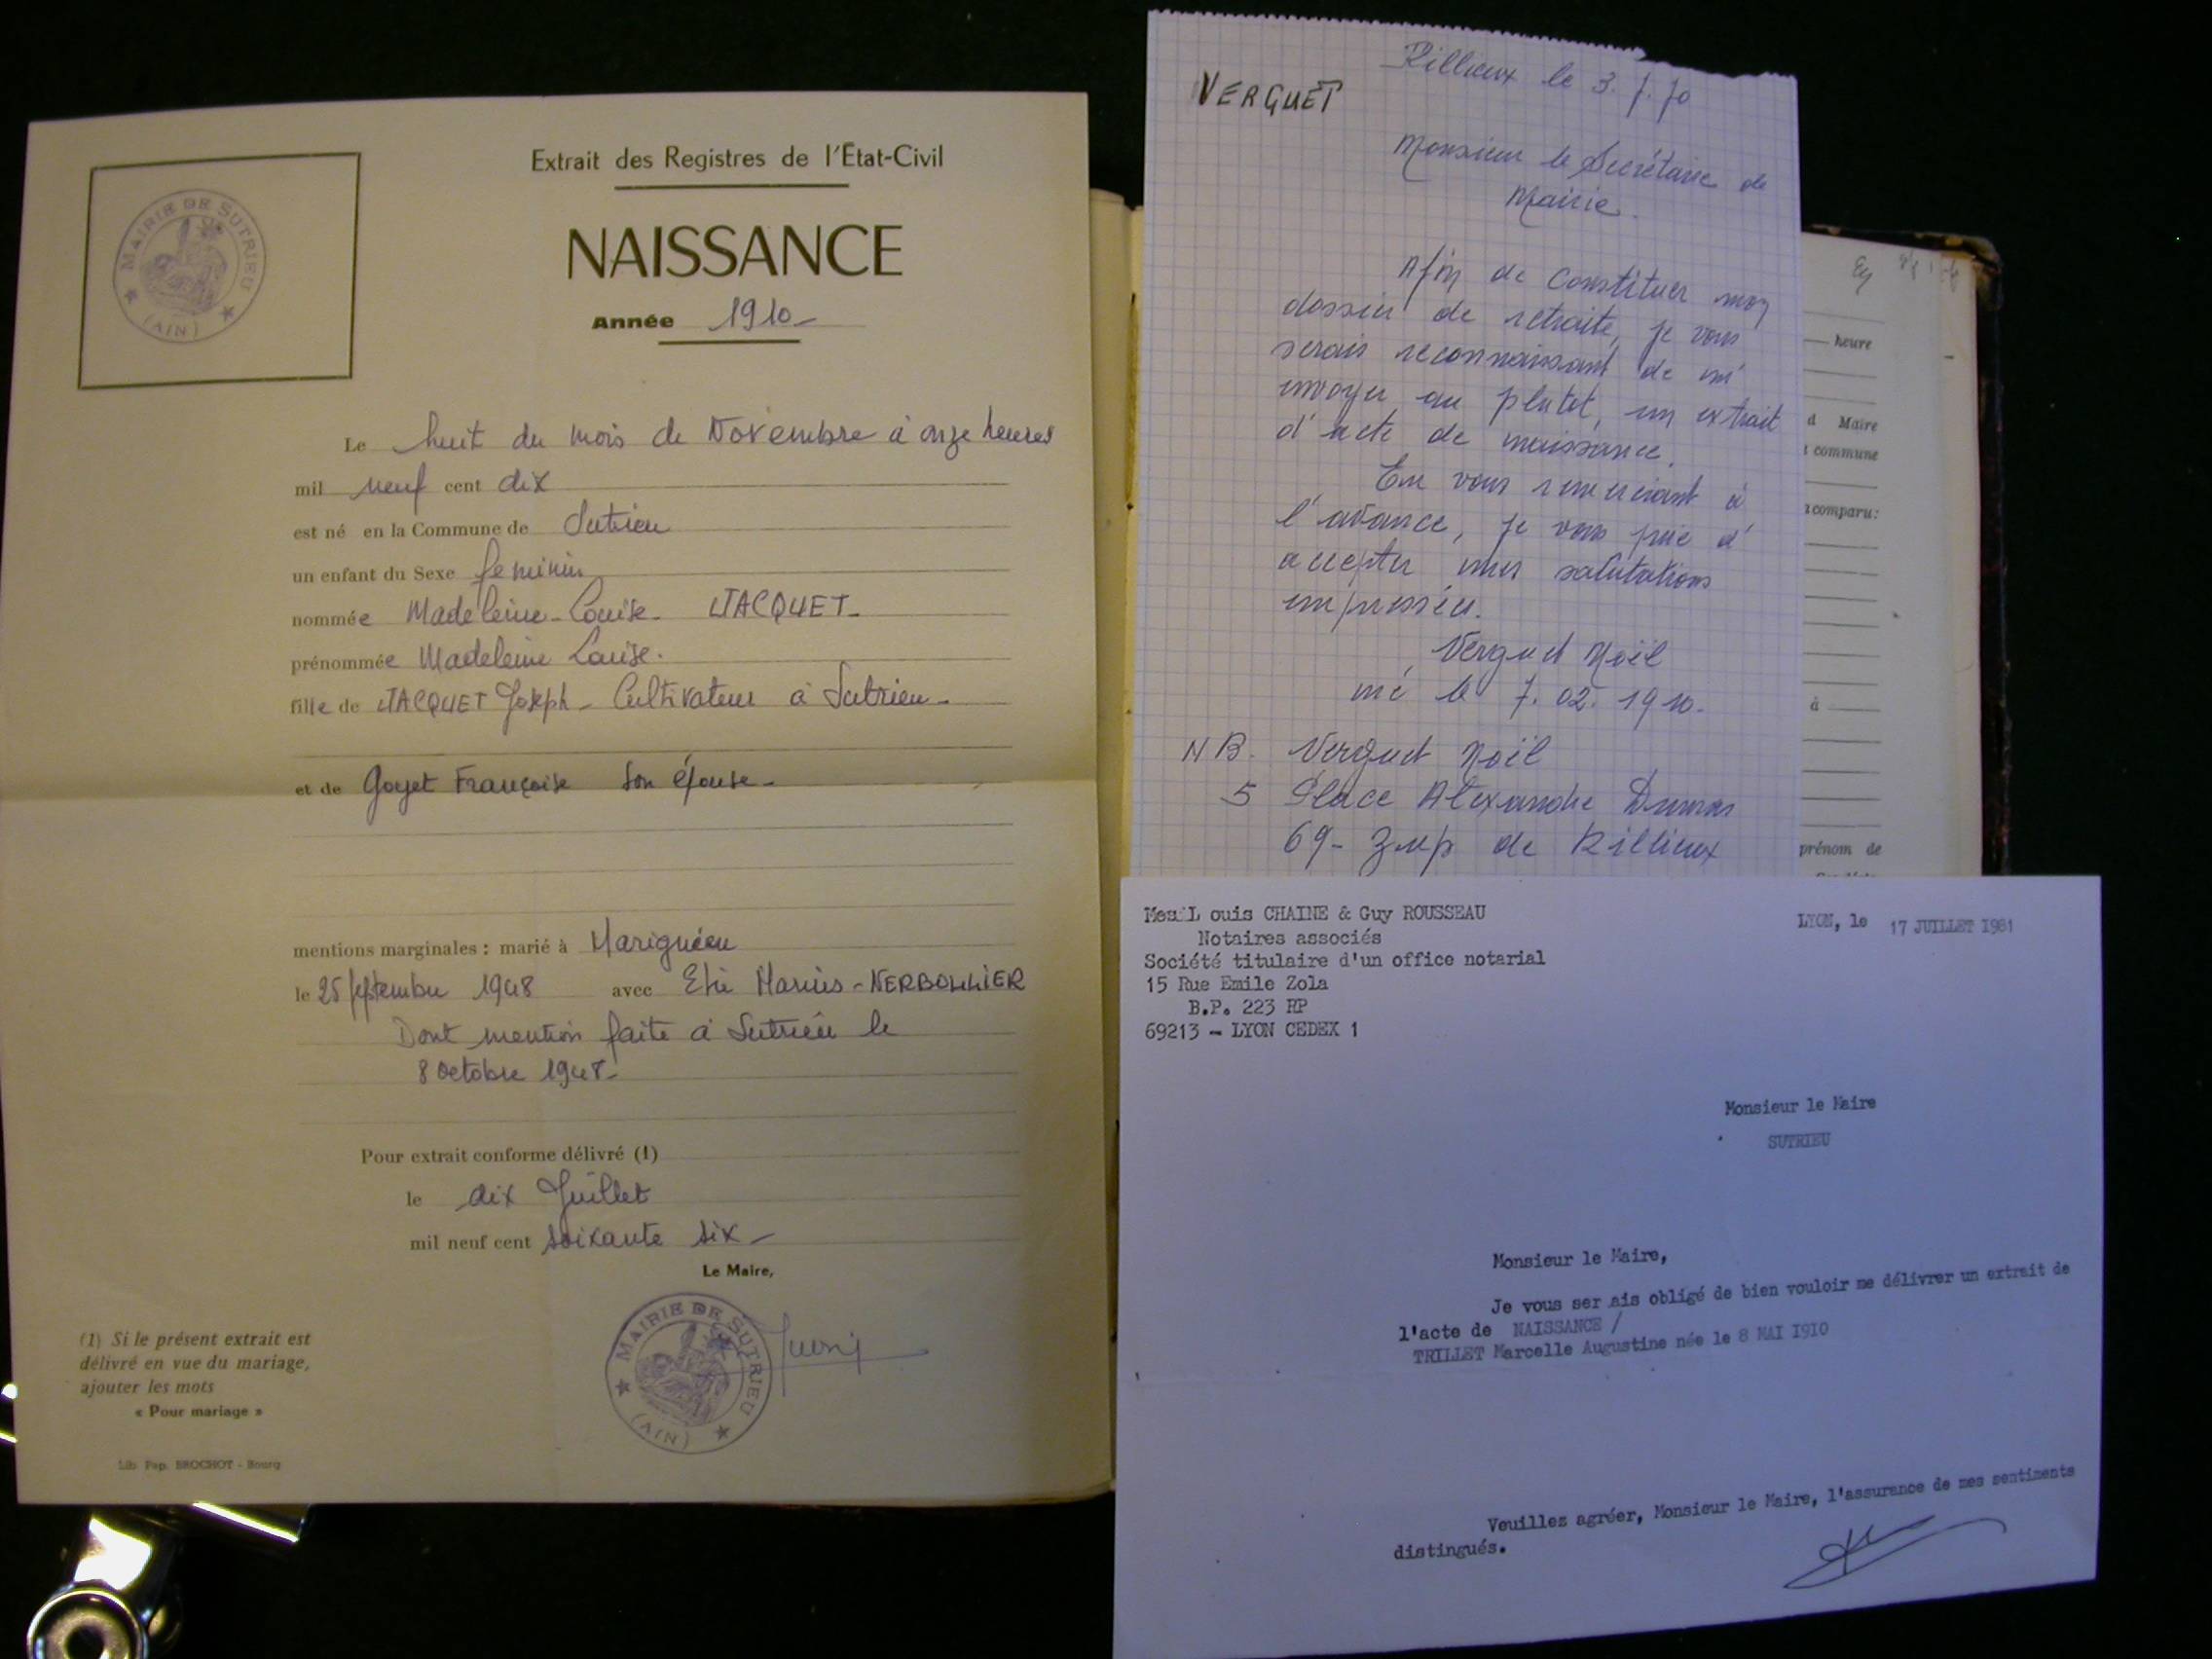 MAIRIE DE SUTRIEU
(AIN)
Extrait des Registres de l'État-Civil
NAISSANCE
Année 1910
Le huit du mois de Novembre à onze heures
mil neuf cent dix
est né en la Commune de Sutrieu
un enfant du Sexe feminin
nommée Madeleine-Louise- JACQUET-
prénommée Madeleine Louise.
fille de JACQUET Joseph - Cultivateur à Sutrieu-
et de Goyet Françoise son épouse-
mentions marginales : marié à Marignieu
le 25 septembre 1948 avec Marius - NERBOLLIER
Dont mention faite à Sutrieu le
8 octobre 1948-
Pour extrait conforme délivré (1)
le dix Juillet
mil neuf cent soixante six-
Le Maire,
MAIRIE DE SUTRIEU
(AIN)
(1) Si le présent extrait est
délivré en vue du mariage,
ajouter les mots
« Pour mariage »
Lib Pap. BROCHOT - Bourg
Rillieux le 3.7.70
VERGUET
Monsieur le Secrétaire de
Mairie.
Afin de constituer mon
dossier de retraite, je vous
serais reconnaissant de m'
envoyer au plutot, un extrait
d'acte de naissance.
En vous remerciant à
l'avance, je vous prie d'
accepter mes salutations
empressées.
Verguet Noël
né le 7.02.1910.
NB. Verguet Noël
5 Place Alexandre Dumas
69- Zup de Rillieux
heure
d Maire
commune
comparu:
à
prénom de
Mes L ouis CHAINE & Guy ROUSSEAU
Notaires associés
Société titulaire d'un office notarial
15 Rue Emile Zola
B.P. 223 RP
69213 - LYON CEDEX 1
LYON, le 17 JUILLET 1981
Monsieur le Maire
SUTRIEU
Monsieur le Maire,
Je vous ser ais obligé de bien vouloir me délivrer un extrait de
l'acte de NAISSANCE /
TRILLET Marcelle Augustine née le 8 MAI 1910
Veuillez agréer, Monsieur le Maire, l'assurance de mes sentiments
distingués.